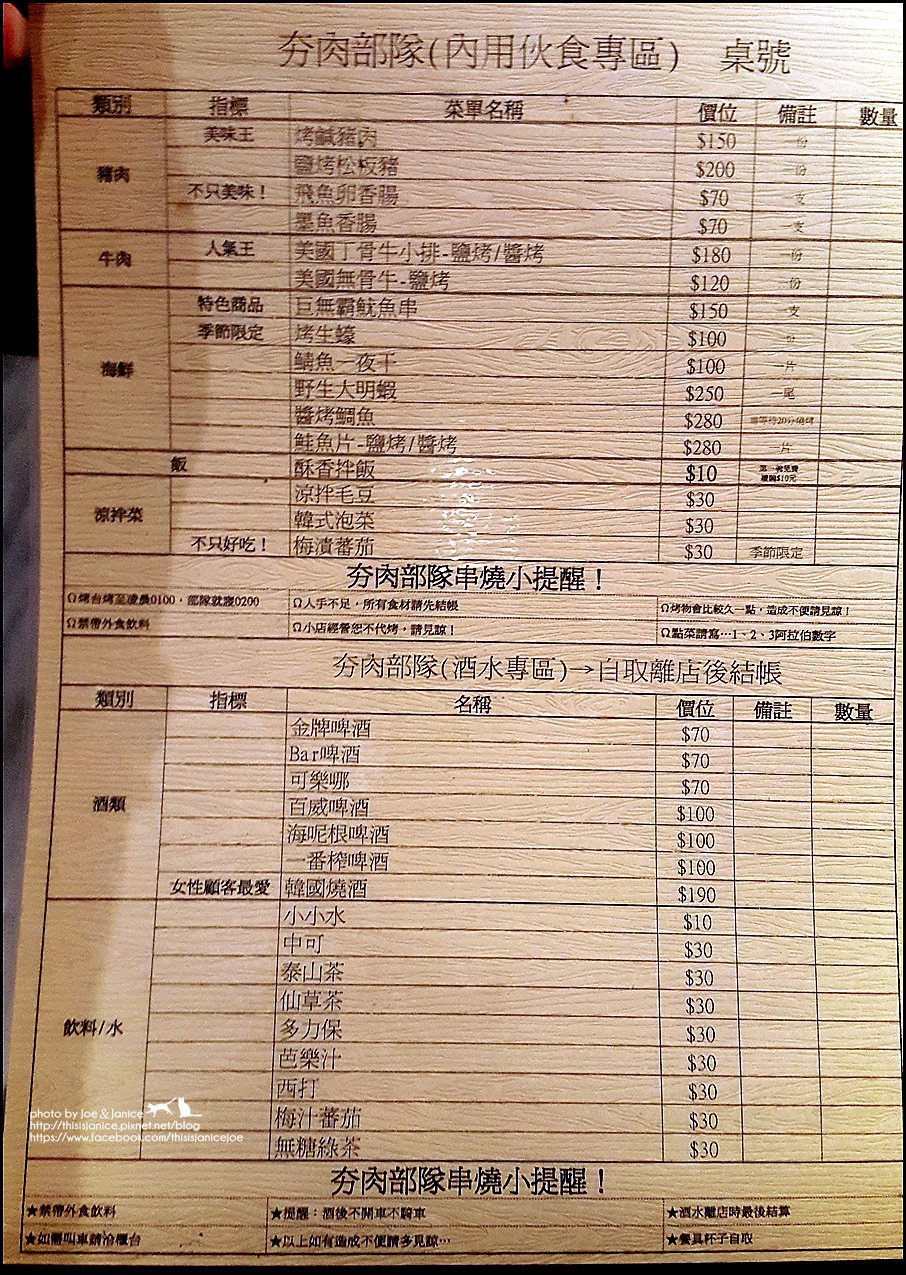 夯肉部隊(內用伙食專區) 桌號
類別 指標 菜單名稱 價位 備註 數量
豬肉 美味王 烤鹹豬肉 $150 一份
鹽烤松板豬 $200 一份
不只美味！ 飛魚卵香腸 $70 一支
墨魚香腸 $70 一支
牛肉 人氣王 美國丁骨牛小排-鹽烤/醬烤 $180 一份
美國無骨牛-鹽烤 $120 一份
海鮮 特色商品 巨無霸魷魚串 $150 一支
季節限定 烤生蠔 $100
鯖魚一夜干 $100 一片
野生大明蝦 $250 一尾
醬烤鯛魚 $280
鮭魚片-鹽烤/醬烤 $280 一片
飯 酥香拌飯 $10 第一碗免費
續碗$10元
涼拌菜 涼拌毛豆 $30
韓式泡菜 $30
不只好吃！ 梅漬蕃茄 $30 季節限定
夯肉部隊串燒小提醒！
Ω烤台烤至凌晨0100，部隊就寢0200 Ω人手不足，所有食材請先結帳 Ω烤物會比較久一點，造成不便請見諒！
Ω禁帶外食飲料 Ω小店經營恕不代烤，請見諒！ Ω點菜請寫…1、2、3阿拉伯數字
夯肉部隊(酒水專區)→自取離店後結帳
類別 指標 名稱 價位 備註 數量
酒類 金牌啤酒 $70
Bar啤酒 $70
可樂哪 $70
百威啤酒 $100
海呢根啤酒 $100
一番榨啤酒 $100
女性顧客最愛 韓國燒酒 $190
飲料/水 小小水 $10
中可 $30
泰山茶 $30
仙草茶 $30
多力保 $30
芭樂汁 $30
西打 $30
梅汁蕃茄 $30
無糖綠茶 $30
夯肉部隊串燒小提醒！
★禁帶外食飲料 ★提醒：酒後不開車不騎車 ★酒水離店時最後結算
★如需叫車請洽櫃台 ★以上如有造成不便請多見諒… ★餐具杯子自取
photo by Joe & Janice
http://thisisjanice.pixnet.net/blog
https://www.facebook.com/thisisjanicejoe